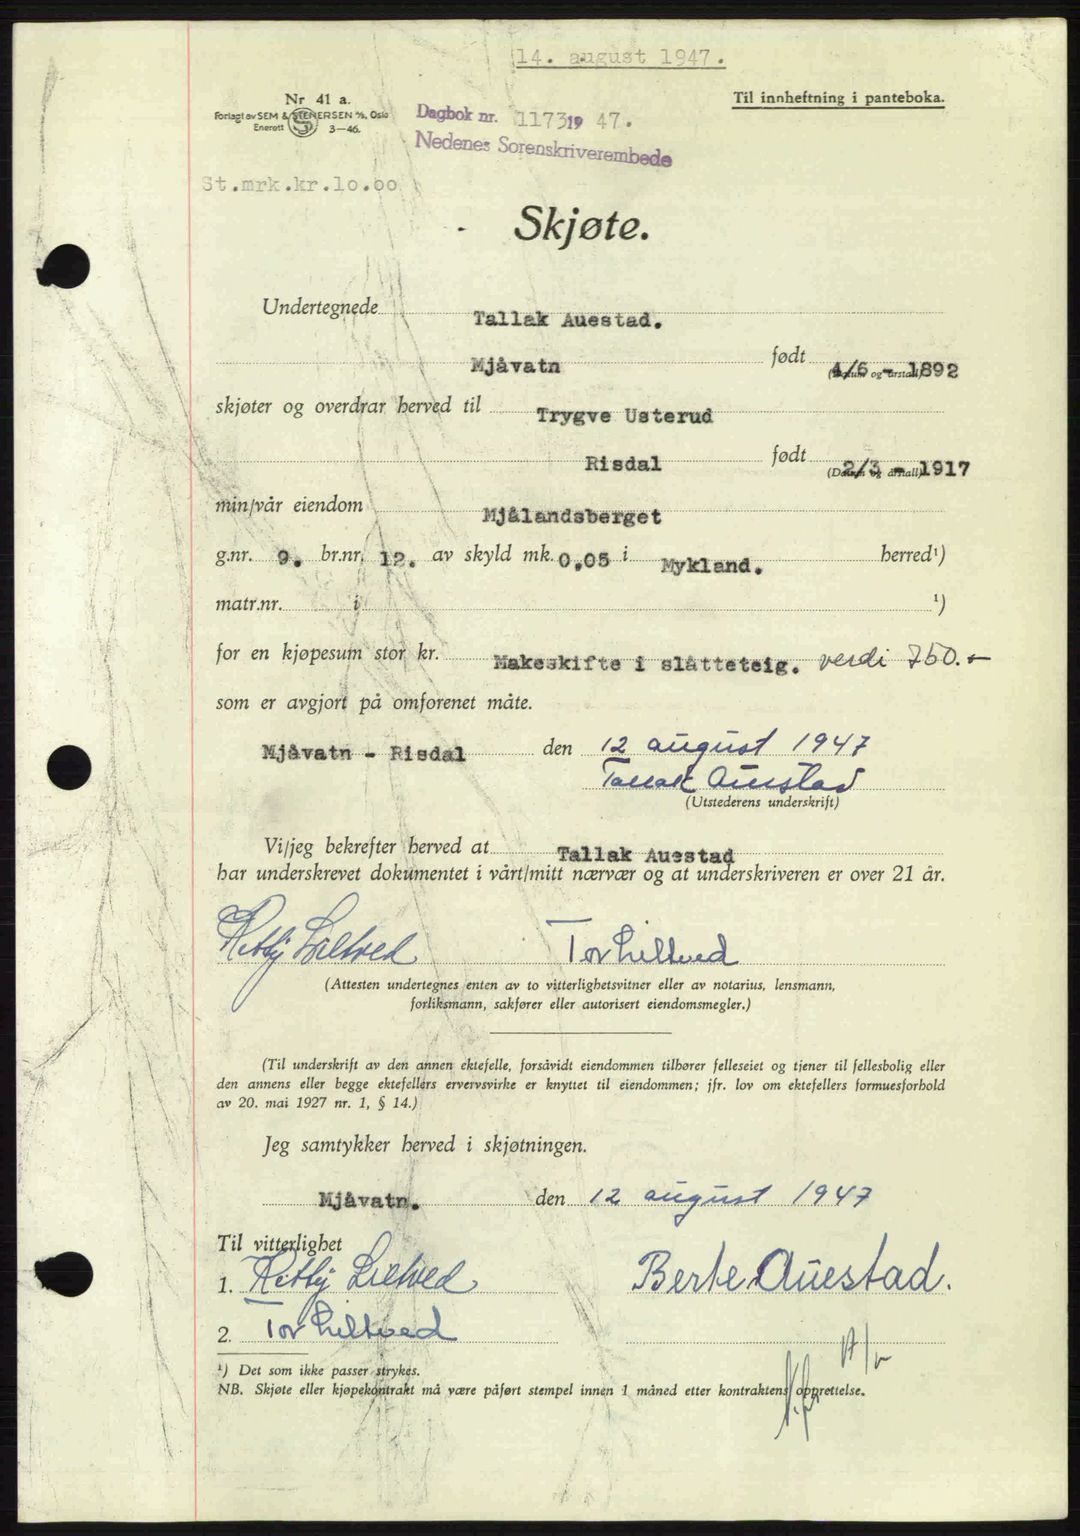 14. august 1947.
Nr 41 a.
Til innheftning i panteboka.
Forlagt av SEM & STENERSEN A/S, Oslo
Enerett 3-46.
Dagbok nr. 1173 19 47.
Nedenes Sorenskriverembede
St.mrk.kr.10.00
Skjøte.
Undertegnede Tallak Auestad.
Mjåvatn født 4/6 - 1892
(Datum og årstall)
skjøter og overdrar herved til Trygve Usterud
Risdal født 2/3 - 1917
(Datum og årstall)
min/vår eiendom Mjålandsberget
g.nr. 9. br.nr. 12. av skyld mk. 0,05 i Mykland. herred¹)
matr.nr. i ¹)
for en kjøpesum stor kr. Makeskifte i slåtteteig. verdi 750.-
som er avgjort på omforenet måte.
Mjåvatn - Risdal den 12 august 1947
Tallak Auestad
(Utstederens underskrift)
Vi/jeg bekrefter herved at Tallak Auestad
har underskrevet dokumentet i vårt/mitt nærvær og at underskriveren er over 21 år.
Lilltved Tor Lilltved
(Attesten undertegnes enten av to vitterlighetsvitner eller av notarius, lensmann,
forliksmann, sakfører eller autorisert eiendomsmegler.)
(Til underskrift av den annen ektefelle, forsåvidt eiendommen tilhører felleseiet og tjener til fellesbolig eller
den annens eller begge ektefellers ervervsvirke er knyttet til eiendommen; jfr. lov om ektefellers formuesforhold
av 20. mai 1927 nr. 1, § 14.)
Jeg samtykker herved i skjøtningen.
Mjåvatn. den 12 august 1947
Til vitterlighet
1. Lilltved Berte Auestad.
2. Tor Lilltved
¹) Det som ikke passer strykes.
NB. Skjøte eller kjøpekontrakt må være påført stempel innen 1 måned etter kontraktens opprettelse.